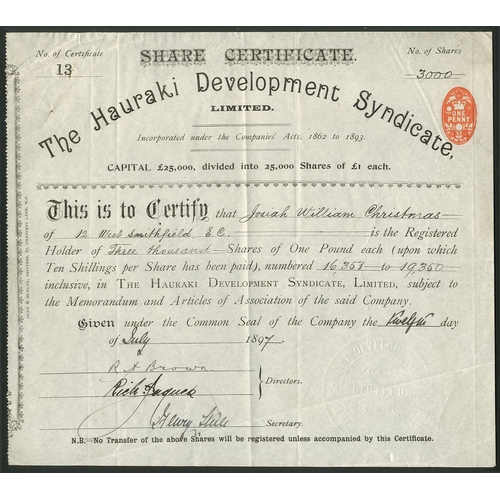 No. of Certificate
13
SHARE CERTIFICATE.
No. of Shares
3000
The Hauraki Development Syndicate,
LIMITED.
ONE PENNY
Incorporated under the Companies' Acts, 1862 to 1893.
CAPITAL £25,000, divided into 25,000 Shares of £1 each.
This is to Certify that Josiah William Christmas
of 12 West Smithfield E.C. is the Registered
Holder of Three thousand Shares of One Pound each (upon which
Ten Shillings per Share has been paid), numbered 16,351 to 19,350
inclusive, in THE HAURAKI DEVELOPMENT SYNDICATE, LIMITED, subject to
the Memorandum and Articles of Association of the said Company.
Given under the Common Seal of the Company the twelfth day
of July 1897
R A Brown
Directors.
Henry
Secretary.
N.B.—No Transfer of the above Shares will be registered unless accompanied by this Certificate.